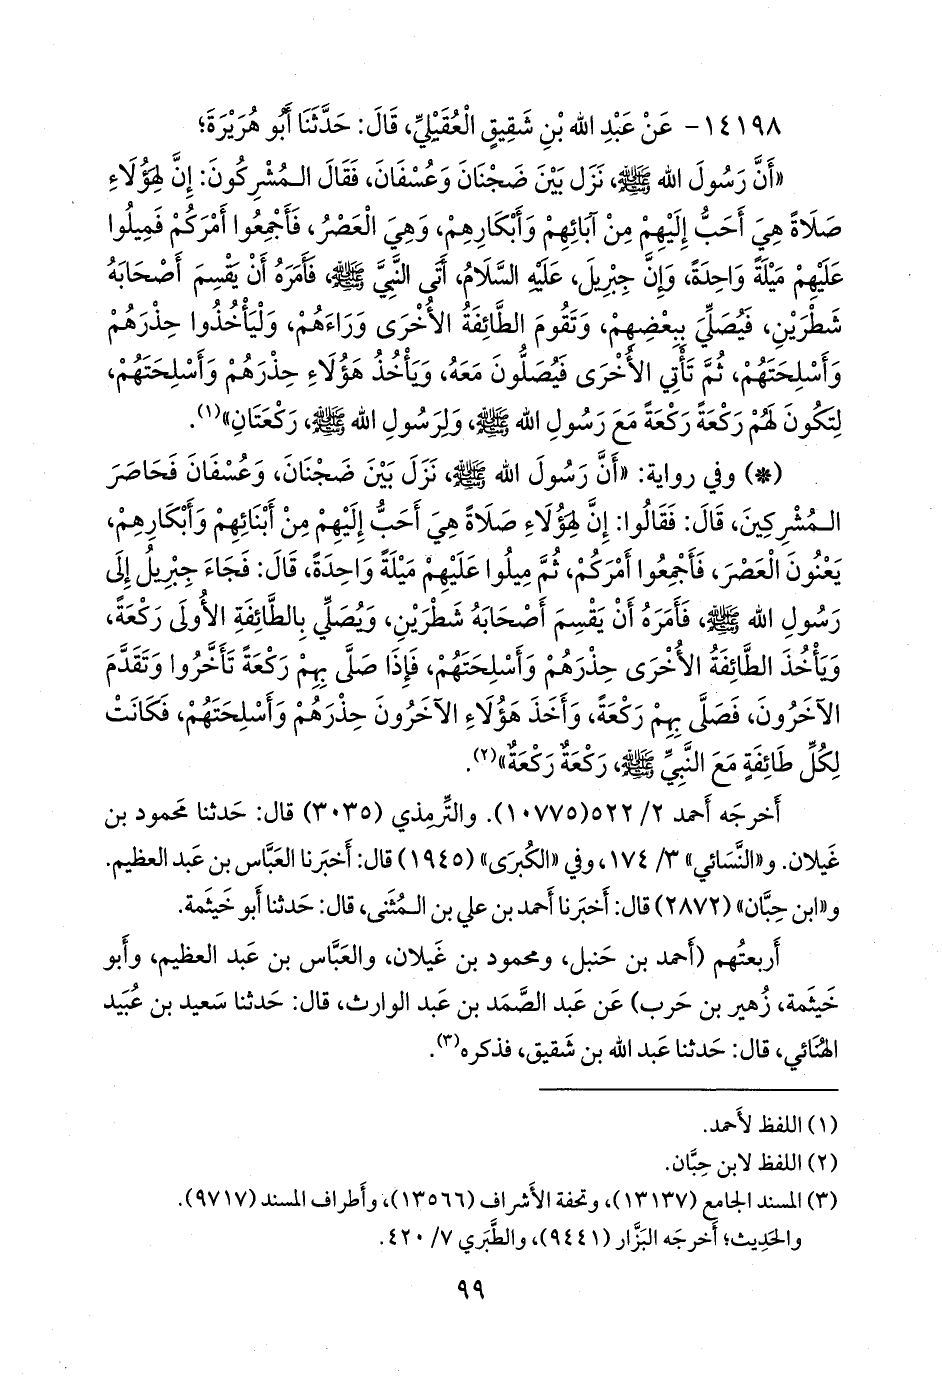 ١٤١٩٨- عَنْ عَبْدِ الله بْنِ شَقِيقٍ الْعُقَيْلِيِّ، قَالَ: حَدَّثَنَا أَبُو هُرَيْرَةَ؛
«أَنَّ رَسُولَ الله ﷺ، نَزَلَ بَيْنَ ضَجْنَانَ وَعُسْفَانَ، فَقَالَ الـمُشْرِكُونَ: إِنَّ لِهَؤُلَاءِ
صَلَاةً هِيَ أَحَبُّ إِلَيْهِمْ مِنْ آبَائِهِمْ وَأَبْكَارِهِمْ، وَهِيَ الْعَصْرُ، فَأَجْمِعُوا أَمْرَكُمْ فَمِيلُوا
عَلَيْهِمْ مَيْلَةً وَاحِدَةً، وَإِنَّ جِبْرِيلَ، عَلَيْهِ السَّلَامُ، أَتَى النَّبِيَّ ﷺ، فَأَمَرَهُ أَنْ يَقْسِمَ أَصْحَابَهُ
شَطْرَيْنِ، فَيُصَلِّيَ بِبَعْضِهِمْ، وَتَقُومَ الطَّائِفَةُ الأُخْرَى وَرَاءَهُمْ، وَلْيَأْخُذُوا حِذْرَهُمْ
وَأَسْلِحَتَهُمْ، ثُمَّ تَأْتِي الأُخْرَى فَيُصَلُّونَ مَعَهُ، وَيَأْخُذُ هَؤُلَاءِ حِذْرَهُمْ وَأَسْلِحَتَهُمْ،
لِتَكُونَ لَهُمْ رَكْعَةً رَكْعَةً مَعَ رَسُولِ الله ﷺ، وَلِرَسُولِ الله ﷺ، رَكْعَتَانِ»(١).
(*) وفي رواية: «أَنَّ رَسُولَ الله ﷺ، نَزَلَ بَيْنَ ضَجْنَانَ، وَعُسْفَانَ فَحَاصَرَ
الـمُشْرِكِينَ، قَالَ: فَقَالُوا: إِنَّ لِهَؤُلَاءِ صَلَاةً هِيَ أَحَبُّ إِلَيْهِمْ مِنْ أَبْنَائِهِمْ وَأَبْكَارِهِمْ،
يَعْنُونَ الْعَصْرَ، فَأَجْمِعُوا أَمْرَكُمْ، ثُمَّ مِيلُوا عَلَيْهِمْ مَيْلَةً وَاحِدَةً، قَالَ: فَجَاءَ جِبْرِيلُ إِلَى
رَسُولِ الله ﷺ، فَأَمَرَهُ أَنْ يَقْسِمَ أَصْحَابَهُ شَطْرَيْنِ، وَيُصَلِّي بِالطَّائِفَةِ الأُولَى رَكْعَةً،
وَيَأْخُذَ الطَّائِفَةُ الأُخْرَى حِذْرَهُمْ وَأَسْلِحَتَهُمْ، فَإِذَا صَلَّى بِهِمْ رَكْعَةً تَأَخَّرُوا وَتَقَدَّمَ
الآخَرُونَ، فَصَلَّى بِهِمْ رَكْعَةً، وَأَخَذَ هَؤُلَاءِ الآخَرُونَ حِذْرَهُمْ وَأَسْلِحَتَهُمْ، فَكَانَتْ
لِكُلِّ طَائِفَةٍ مَعَ النَّبِيِّ ﷺ، رَكْعَةٌ رَكْعَةٌ»(٢).
أَخرجَه أَحمد ٢/ ٥٢٢(١٠٧٧٥). والتِّرمِذي (٣٠٣٥) قال: حَدثنا محَمود بن
غَيلان. و«النَّسَائي» ٣/ ١٧٤، وفي «الكُبرَى» (١٩٤٥) قال: أَخبَرنا العَبَّاس بن عَبد العظيم.
و«ابن حِبَّان» (٢٨٧٢) قال: أَخبَرنا أحمد بن علي بن الـمُثنى، قال: حَدثنا أَبو خَيثمة.
أَربعتُهم (أَحمد بن حَنبل، ومحمود بن غَيلان، والعَبَّاس بن عَبد العظيم، وأَبو
خَيثمة، زُهير بن حَرب) عَن عَبد الصَّمَد بن عَبد الوارث، قال: حَدثنا سَعيد بن عُبَيد
الهُنَائي، قال: حَدثنا عَبد الله بن شَقيق، فذكره(٣).
(١) اللفظ لأَحمد.
(٢) اللفظ لابن حِبَّان.
(٣) المسند الجامع (١٣١٣٧)، وتحفة الأشراف (١٣٥٦٦)، وأَطراف المسند (٩٧١٧).
والحَدِيث؛ أَخرجَه البَزَّار (٩٤٤١)، والطَّبَري ٧/ ٤٢٠.
٩٩